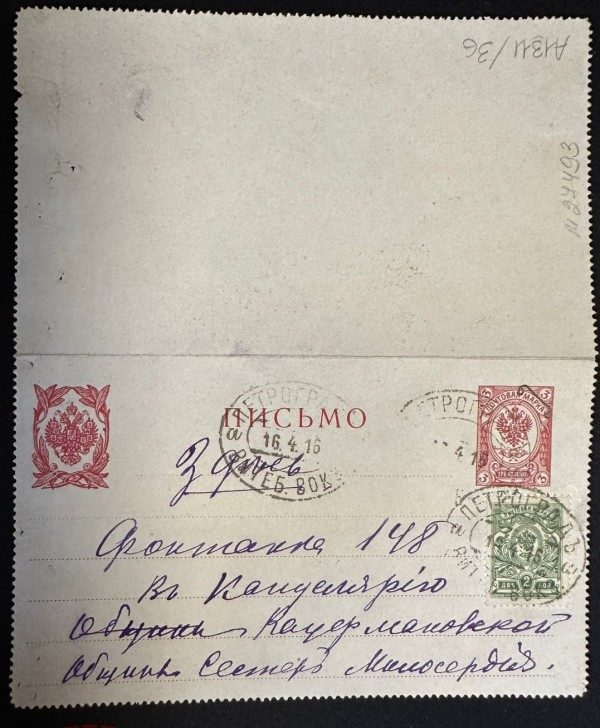 А1311/36
М 27493
ПИСЬМО
ПЕТРОГРА
16.4.16
а
ВИТЕБ. ВОКЗ
ПЕТРОГР
4.16
3
ПОЧТОВАЯ МАРКА
3
3
3
ПЕТРОГРАДЪ
а
2
КОП КОП
Здѣсь
Фонтанка 148
Въ Канцелярію
Общины Кауфмановской
Общины Сестеръ Милосердія.